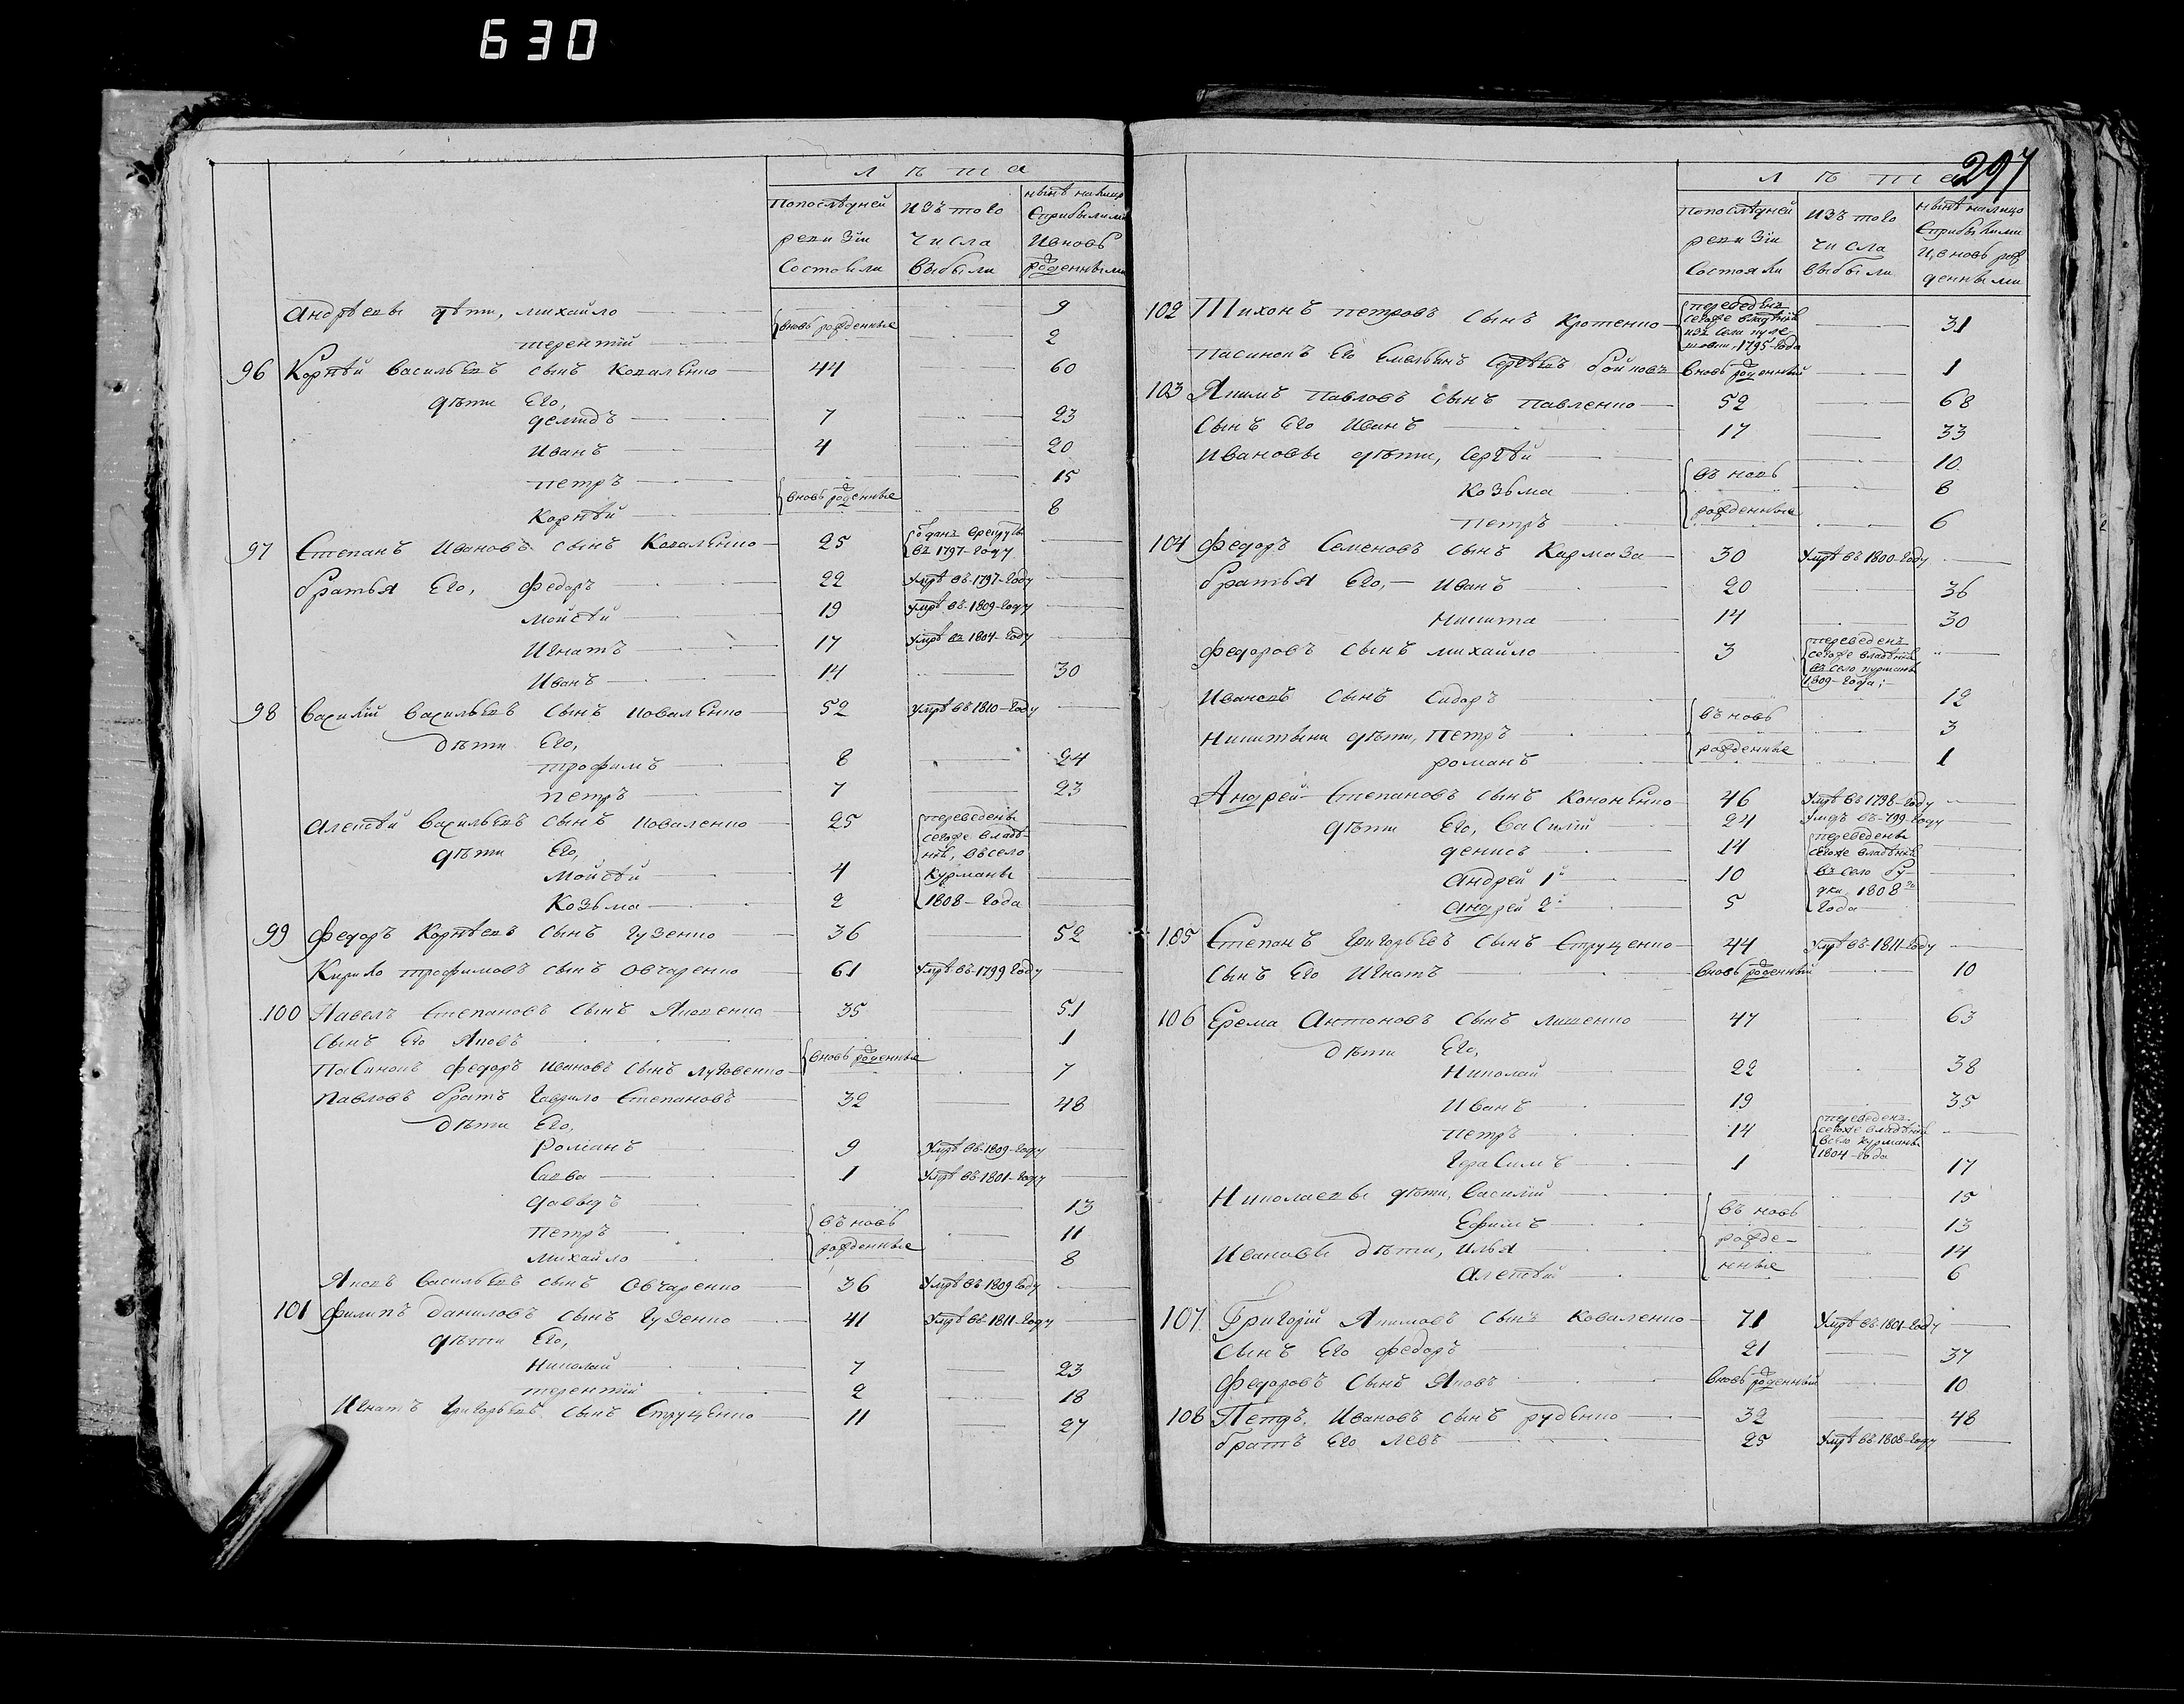 630
Лѣта
Попослѣдней ревизіи Состояли
Изъ того числа выбыли
Нынѣ на лицо Сприбылыми И вновь рожденными
Андрѣевы дѣти, михайло — 9
терентій — вновь рожденные — 2
96 Корнѣй васильевъ сынъ Коваленко — 44 — 60
дѣти Его,
демидъ — 7 — 23
Иванъ — 4 — 20
петръ — вновь рожденные — 15
Корнѣй — 8
97 Степанъ Ивановъ сынъ Коваленко — 25 отданъ врекруты въ 1797-году —
братья Его, Федоръ — 22 Умрѣ въ 1797-году —
Мойсѣй — 19 Умрѣ въ 1809-году —
Игнатъ — 17 Умрѣ въ 1804-году —
Иванъ — 14 — 30
98 Василій васильевъ сынъ коваленко — 52 Умрѣ въ 1810-году —
дѣти Его,
трофимъ — 8 — 24
петръ — 7 — 23
Алексѣй васильевъ сынъ коваленко — 25 переведены
дѣти Его, сегоже владѣ-
нія, всело
Мойсѣй — 4 Курманы —
Козьма — 2 1808-года —
99 Федоръ Корнѣевъ сынъ гузенко — 36 — 52
Кирило трофимовъ сынъ Овчаренко — 61 Умрѣ въ 1799 году —
100 Павелъ Степановъ сынъ Яковенко — 35 — 51
сынъ Его Яковъ — вновь рожденные — 1
Пасинокъ федоръ Ивановъ сынъ луговенко — 7
Павловъ братъ гаврило Степановъ — 32 — 48
дѣти Его,
романъ — 9 Умрѣ въ 1809-году —
Савва — 1 Умрѣ въ 1801-году —
давыдъ — 13
петръ — въ новь — 11
михайло — рожденные — 8
Яковъ васильевъ сынъ Овчаренко — 36 Умрѣ въ 1809 году —
101 Филипъ даниловъ сынъ гузенко — 41 Умрѣ въ 1811-году —
дѣти Его,
Николай — 7 — 23
терентій — 2 — 18
Игнатъ григорьевъ сынъ Струценко — 11 — 27
297
Лѣта
попослѣдней ревизіи Состояли
изъ того числа выбыли
нынѣ на лицо Сприбылими И, вновь рожденными
102 Тихонъ петровъ сынъ Кротенко — переведенъ сегоже владѣнія изъ села 1795-года — 31
Пасинокъ Его Емельянъ Сергѣевъ бойковъ вновь рожденный — 1
103 Якимъ Павловъ сынъ Павленко — 52 — 68
Сынъ Его Иванъ — 17 — 33
Ивановы дѣти, Сергѣй — 10
Козьма — въ новь — 8
петръ — рожденные — 6
104 федоръ Семеновъ сынъ Кармаза — 30 Умрѣ въ 1800-году —
братья Его, — Иванъ — 20 — 36
Никита — 14 — 30
федоровъ сынъ михайло — 3 переведенъ сегоже владѣнія въ село курманы 1809-года; —
Ивановъ сынъ Сидоръ — 12
Никитыни дѣти, Петръ — въ новь — 3
романъ — рожденные — 1
Андрей Степановъ сынъ Кононенко — 46 Умрѣ въ 1798-году —
дѣти Его, василій — 24 Умрѣ въ 799-году —
денисъ — 14 переведены сегоже владѣнія —
Андрей 1й — 10 въ село бу- —
Андрей 2й — 5 дки, 1808го года —
105 Степанъ григорьевъ сынъ Струценко — 44 Умрѣ въ 1811-году —
сынъ Его Игнатъ — вновь рожденный — 10
106 Ерема Антоновъ сынъ лишенко — 47 — 63
дѣти Его,
Николай — 22 — 38
Иванъ — 19 — 35
петръ — 14 переведенъ сегоже владѣнія всело курманы 1804-года —
герасимъ — 1 — 17
Николаевы дѣти, василій — 15
Ефимъ — въ новь — 13
Ивановы дѣти, Илья — рожде- — 14
Алексѣй — нные — 6
107 Григорій Якимовъ сынъ Коваленко — 71 Умрѣ въ 1801-году —
Сынъ Его федоръ — 21 — 37
Федоровъ сынъ Яковъ — вновь рожденный — 10
108 Петръ Ивановъ сынъ руденко — 32 — 48
братъ Его левъ — 25 Умрѣ въ 1808-году —